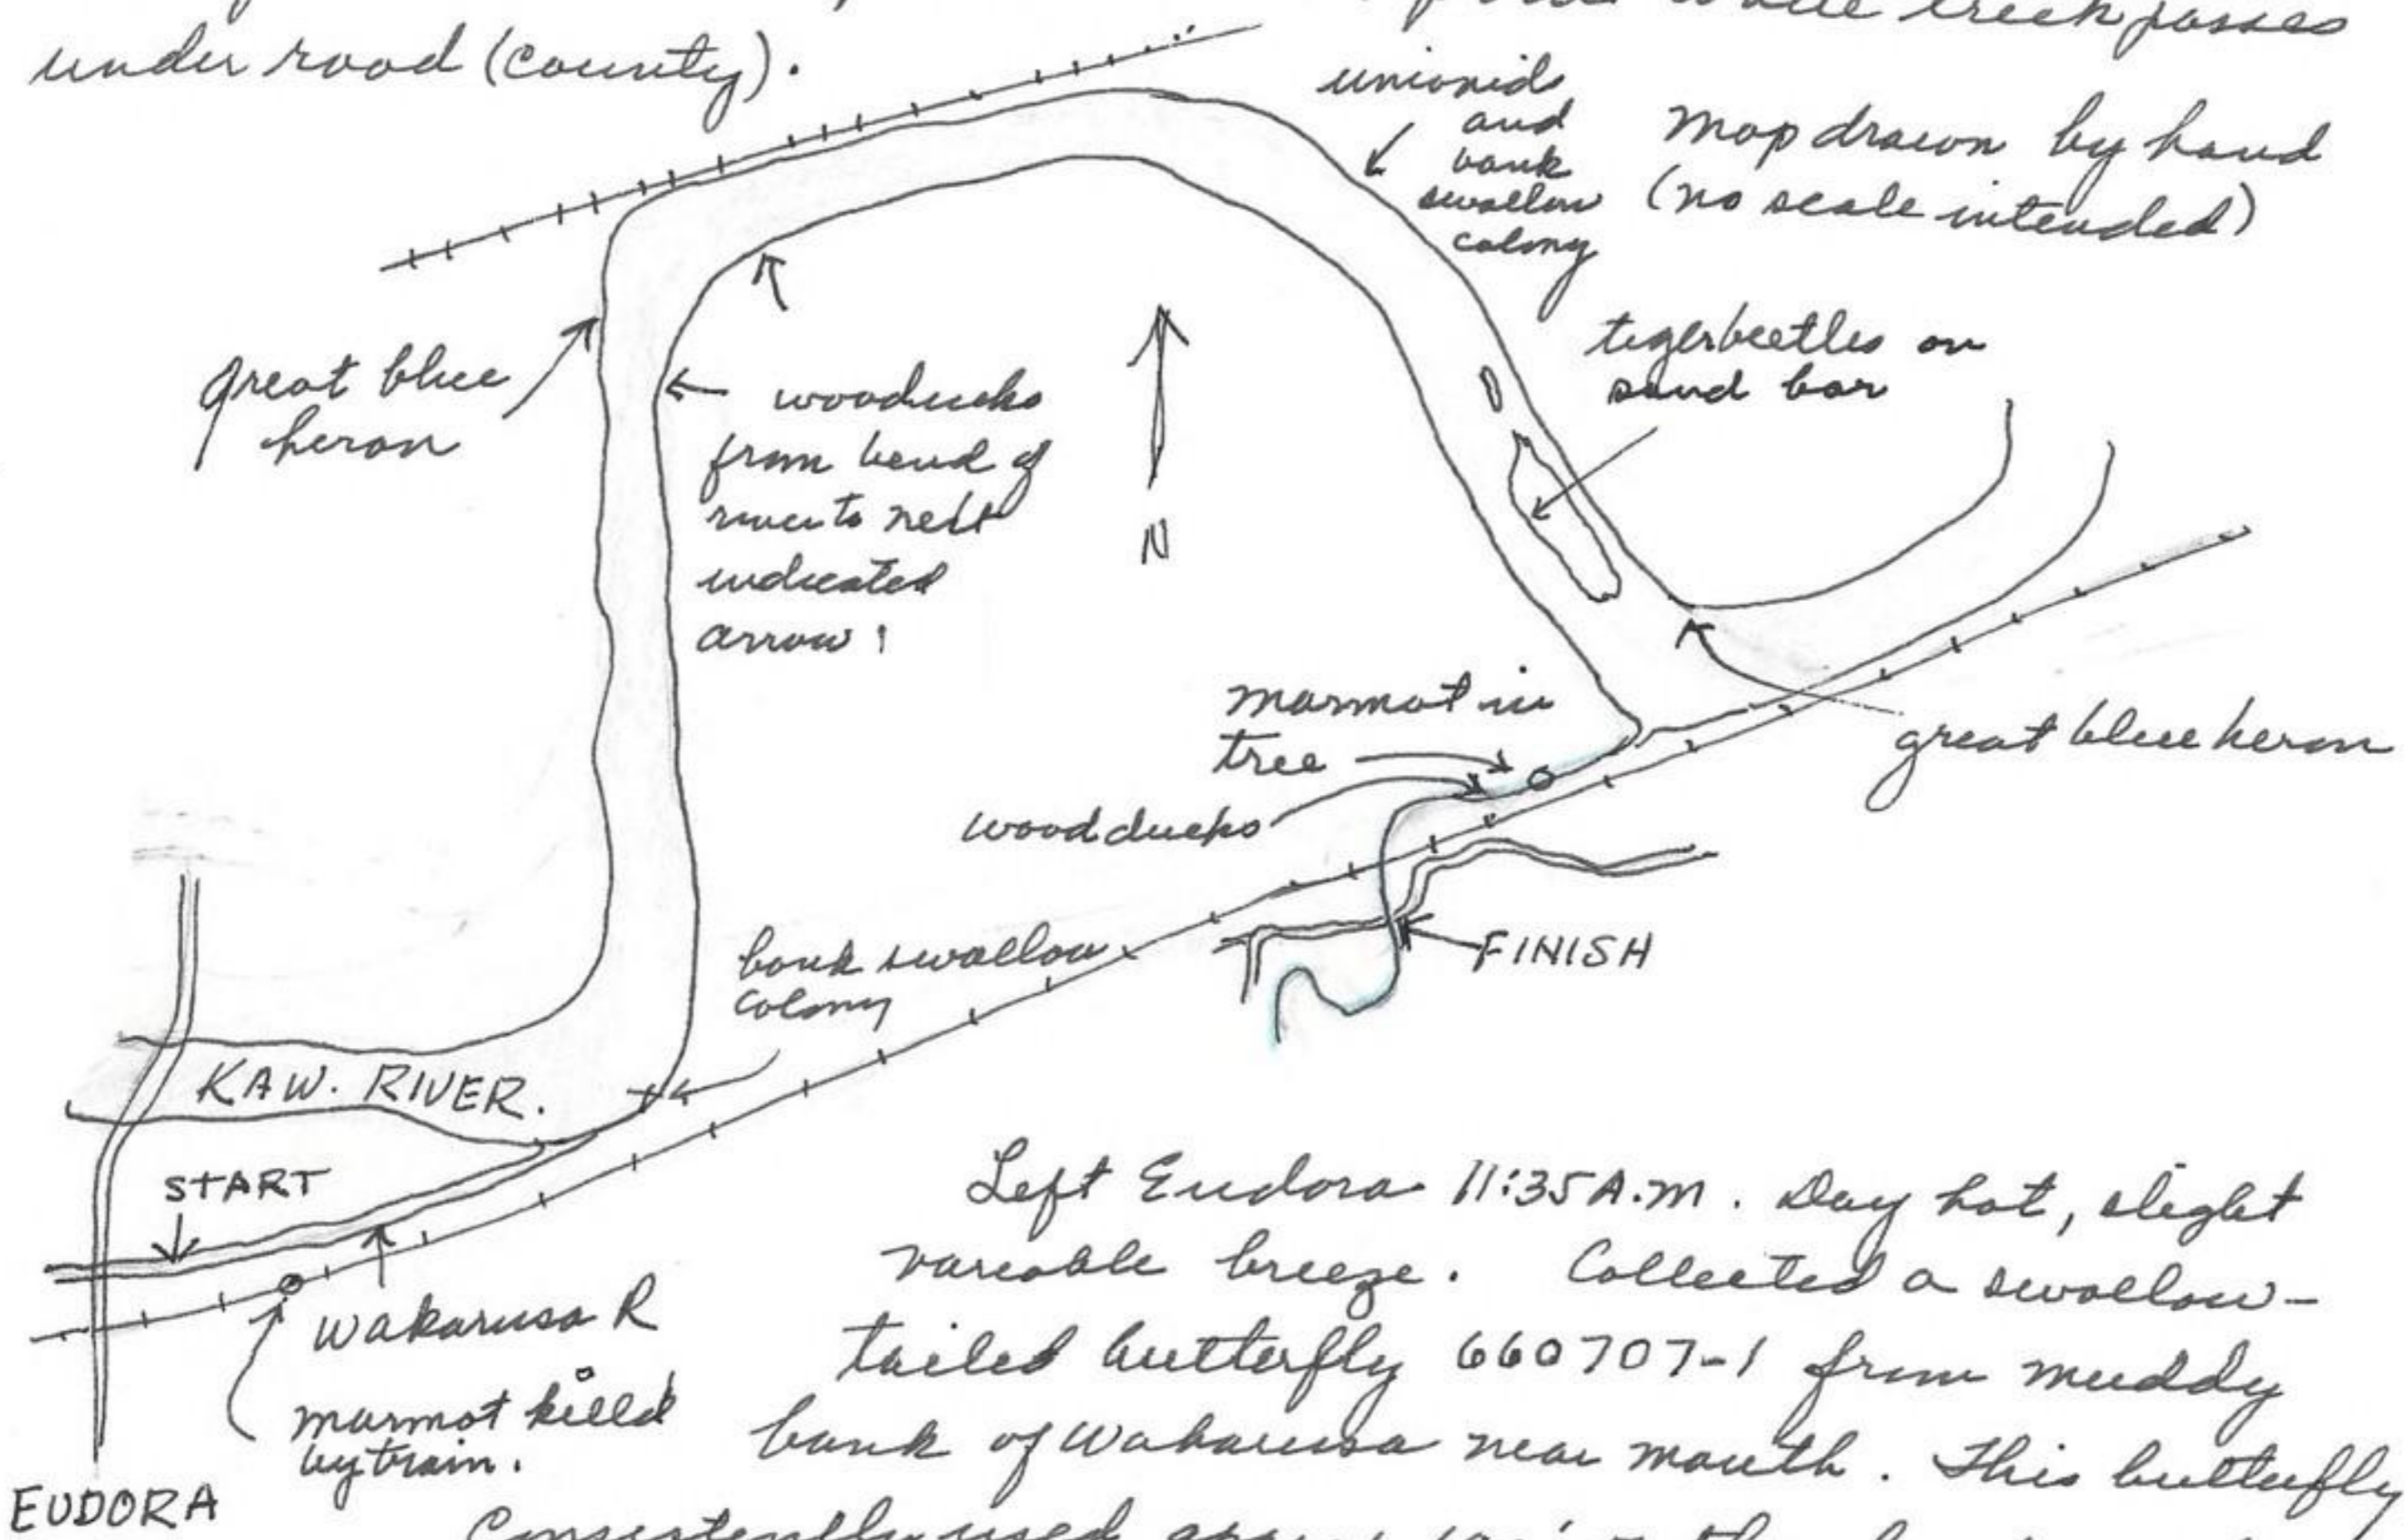 while creek passes
under road (County).
unionid
and
bank
swallow
colony
Map drawn by hand
(no scale intended)
great blue
heron
wooducks
from bend of
river to next
indicated
arrow!
N
tigerbeetles on
sand bar
marmot in
tree
wood ducks
great blue heron
FINISH
bank swallow
colony
KAW. RIVER.
START
Wakarusa R
marmot killed
by train.
EUDORA
Left Eudora 11:35 A.M. Day hot, slight
variable breeze. Collected a swallow-
tailed butterfly 660707-1 from muddy
bank of Wakarusa near mouth. This butterfly
Consistently used